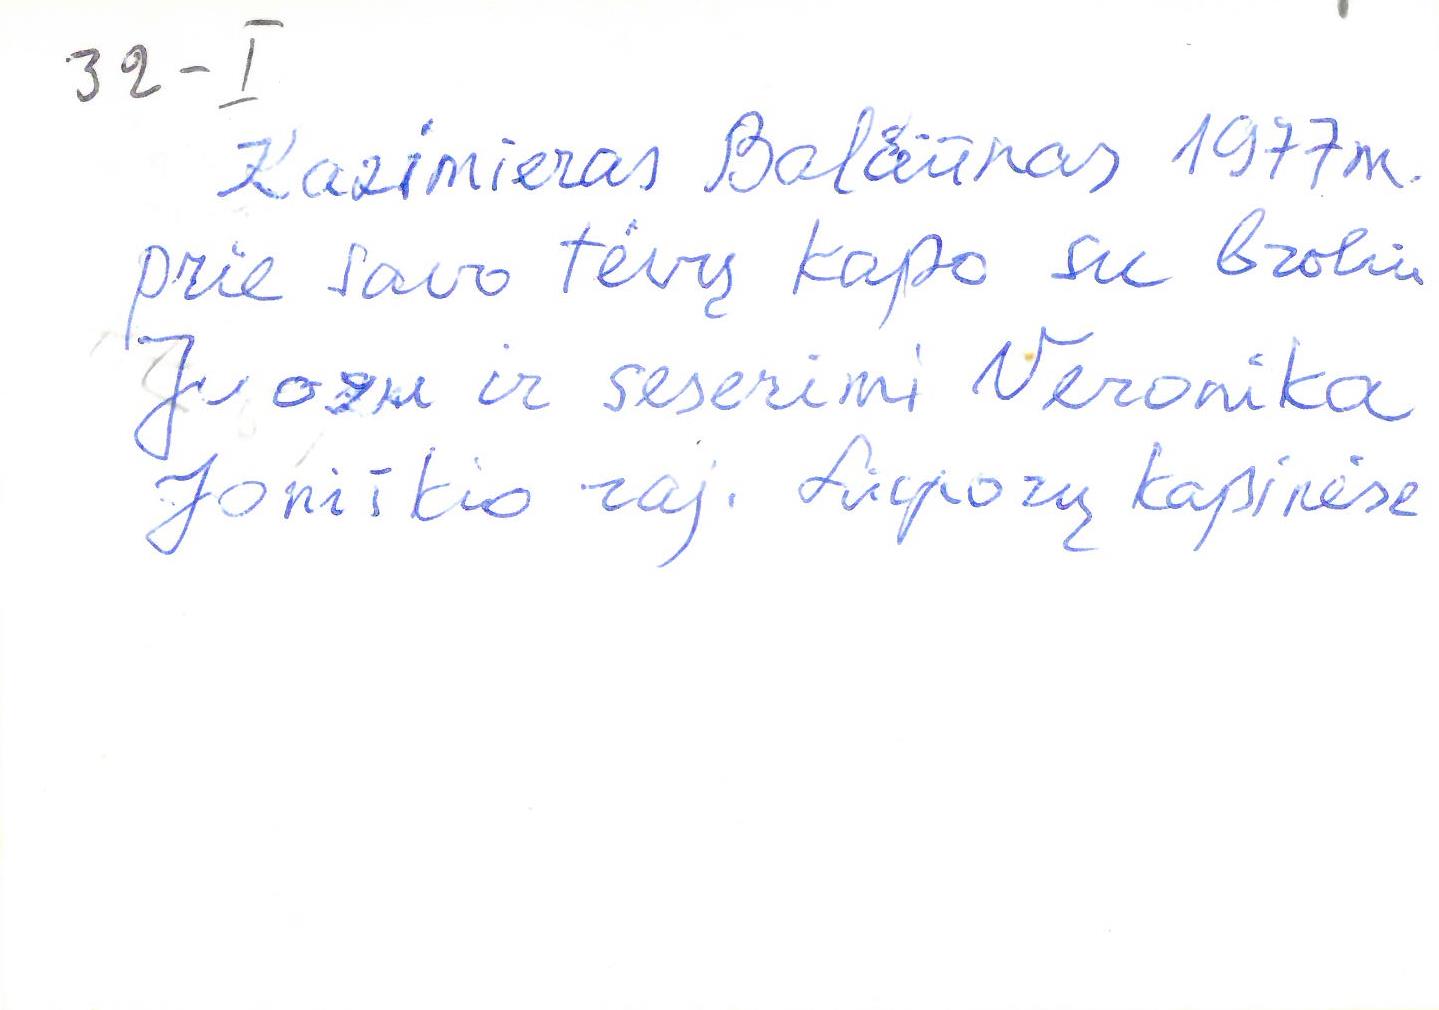 32-I
Kazimieras Balčiūnas 1977m.
prie savo tėvų kapo su broliu
Juozu ir seserimi Veronika
Joniškio raj. kapinėse